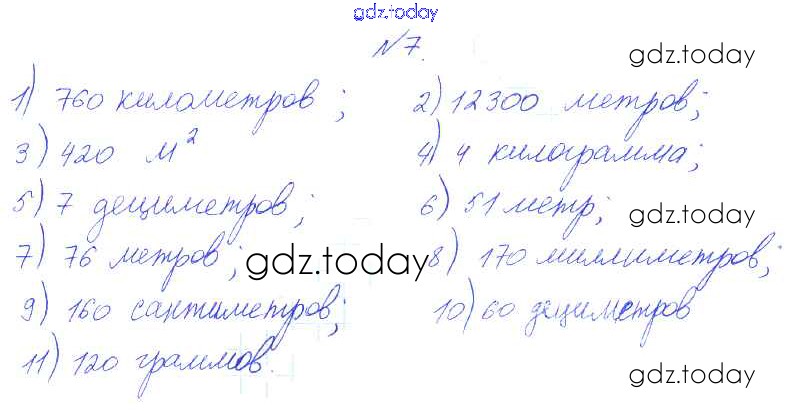 gdz.today
№7.
gdz.today
1) 760 километров; 2) 12300 метров;
3) 420 м² 4) 4 килограмма;
gdz.today
5) 7 дециметров; 6) 51 метр;
gdz.today
7) 76 метров; 8) 170 миллиметров;
gdz.today
9) 160 сантиметров; 10) 60 дециметров
11) 120 граммов.
gdz.today